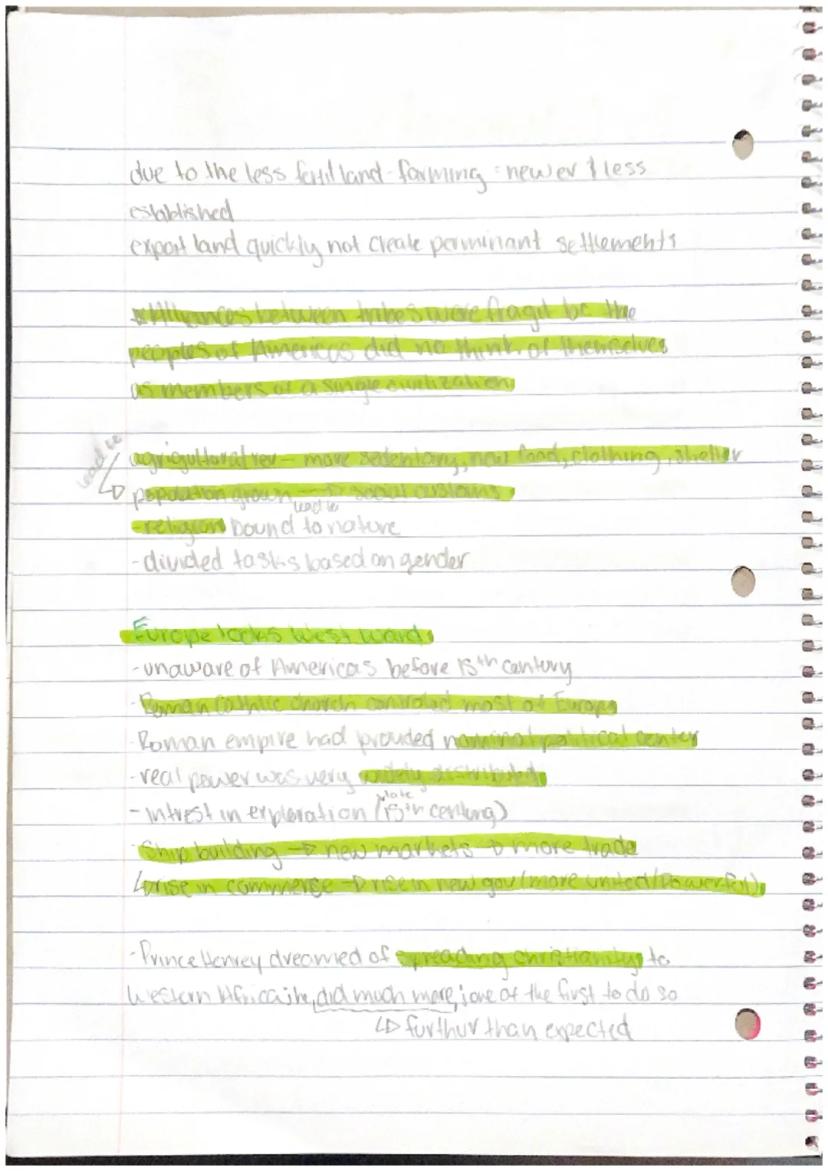 due to the less fertil land - farming = newer & less
established
export land quickly not create perminant settlements
*Alliances between tribes were fragil bc the
peoples of Americas did no think of themselves
as members of a single civilization
lead to
agrigultoral rev - more sedentary, new food, clothing, shelter
↳ population grown → social customs
lead to
- religion bound to nature
- divided tasks based on gender
Europe looks West ward
- unaware of Americas before 15th century
- Roman Cathlic church controled most of Europe
- Roman empire had provided nominal political center
- real power was very widely distributed
late
- intrest in exploration (15th century)
- Ship building → new markets → more trade
↳ rise in commerce → rise in new gov (more united/powerful)
- Prince Henrey dreamed of spreading christianity to
Western Africa; he did much more; one of the first to do so
↳ furthur than expected